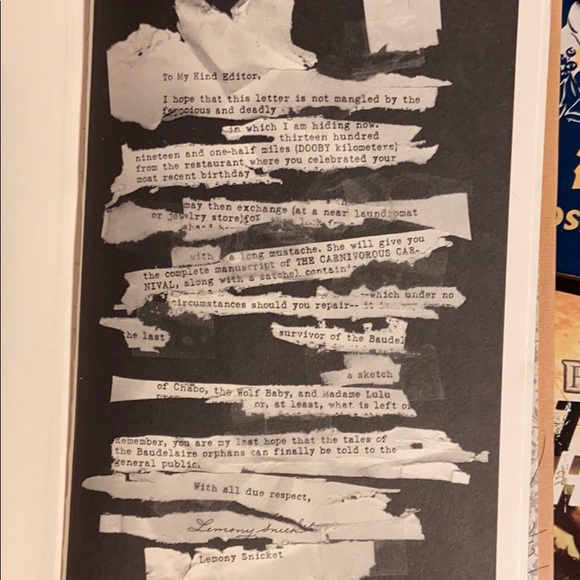 To My Kind Editor,
I hope that this letter is not mangled by the
ferocious and deadly
in which I am hiding now.
thirteen hundred
nineteen and one-half miles (DOOBY kilometers)
from the restaurant where you celebrated your
most recent birthday
may then exchange (at a near laundromat
or jewelry store)for
with a long mustache. She will give you
the complete manuscript of THE CARNIVOROUS CAR-
NIVAL, along with a satchel contain
--which under no
circumstances should you repair--
he last
survivor of the Baudel
a sketch
of Chabo, the Wolf Baby, and Madame Lulu
or, at least, what is left of
Remember, you are my last hope that the tales of
the Baudelaire orphans can finally be told to the
general public.
With all due respect,
Lemony Snicket
Lemony Snicket